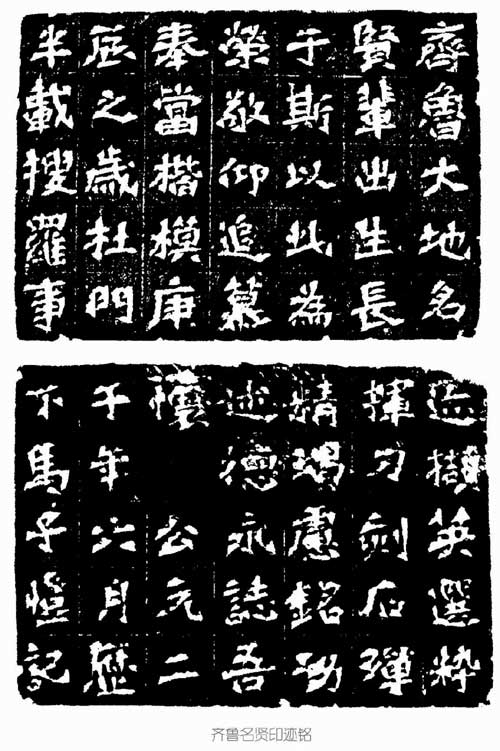 齊魯大地名
賢輩出生長
于斯以此為
榮敬仰追慕
奉當楷模庚
辰之歲杜門
半載搜羅事
迹擷英選粹
揮刀刻石殫
精竭慮銘功
述德永誌吾
懷 公元二
千年六月歷
下馬子愷記
齐鲁名贤印迹铭